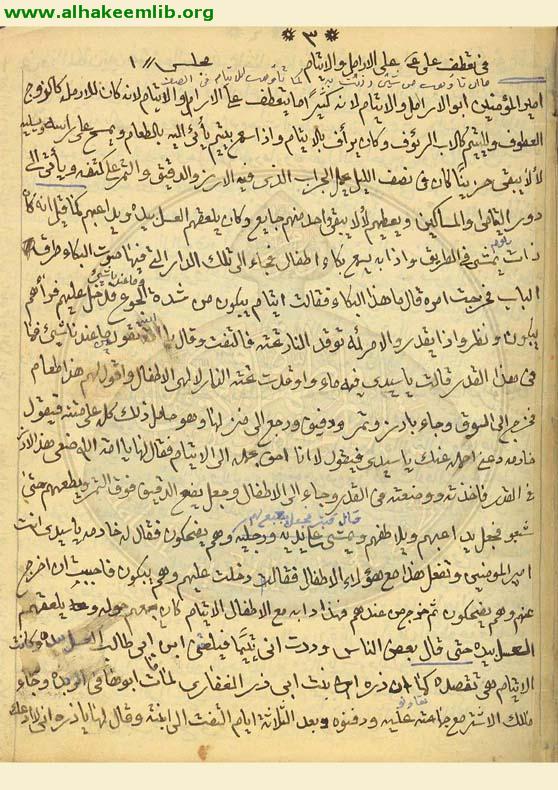 www.alhakeemlib.org
* ٣ *
في تعطف علي ع على الارامل والايتام مجلس ١
امير المؤمنين ابو الارامل والايتام لانه كثيراً ما يتعطف على الارامل والايتام لانه كان للارامل كالزوج
العطوف ولليتيم كالاب الرئوف وكان يرأف بالايتام واذا سمع بيتيم يأتي اليه بالطعام ويمسح على راسه
لألا يبقى حزيناً كان في نصف الليل يحمل الجراب الذي فيه الارز والدقيق والتمر على كتفه ويأتي الى
دور اليتامى والمساكين ويعطيهم لألا يبقى احد منهم جايع وكان يلعقهم العسل بيده ويداعبهم كما قيل انه كان
ذات يوم يمشي في الطريق واذا به يسمع بكاء اطفال فجاء الى تلك الدار التي فيها صوت البكاء طرق
الباب فخرجت امرة قال ما هذا البكاء فقالت ايتام يبكون من شدة الجوع فدخل عليهم فرأهم
يبكون ونظر واذا بقدر والامرئة توقد النار تحته فالتفت وقال
في هذا القدر قالت يا سيدي فيه ماء واوقدت تحته النار لالهي الاطفال واقول لهم هذا طعام
فخرج الى السوق وجاء بارز وتمر ودقيق ورجع الى منزلها وهو حامل ذلك كله على متنه فيقول
خادمه دعني احمله عنك يا سيدي فيقول لا انا احق بحمله الى الايتام فقال لها يا امة الله ضعي هذا الارز
في القدر فاخذته ووضعته في القدر وجاء الى الاطفال وجعل يضع الدقيق فوق التمر ويطعمهم حتى
شبعو فجعل يداعبهم ويلاطفهم ويمشي على يديه ورجليه وهم يضحكون فقال له خادمه يا سيدي انت
امير المؤمنين وتفعل هذا مع هؤلاء الاطفال فقال دخلت عليهم وهم يبكون فاحببت ان اخرج
عنهم وهم يضحكون ثم خرج من عندهم فهذا دابه مع الاطفال الايتام كان يجمعهم حوله ويلعقهم
العسل بيده حتى قال بعض الناس وددت اني يتيما فيلعقني ابن ابي طالب العسل بيده وكانت
الايتام هي تقصده كما ان ذره بنت ابي ذر الغفاري لما مات ابوها في الربذه وجاء
مالك الاشتر مع جماعته عليه ودفنوه وبعد الثلاثة ايام التفت الى ابنته وقال لها يا ذره اني